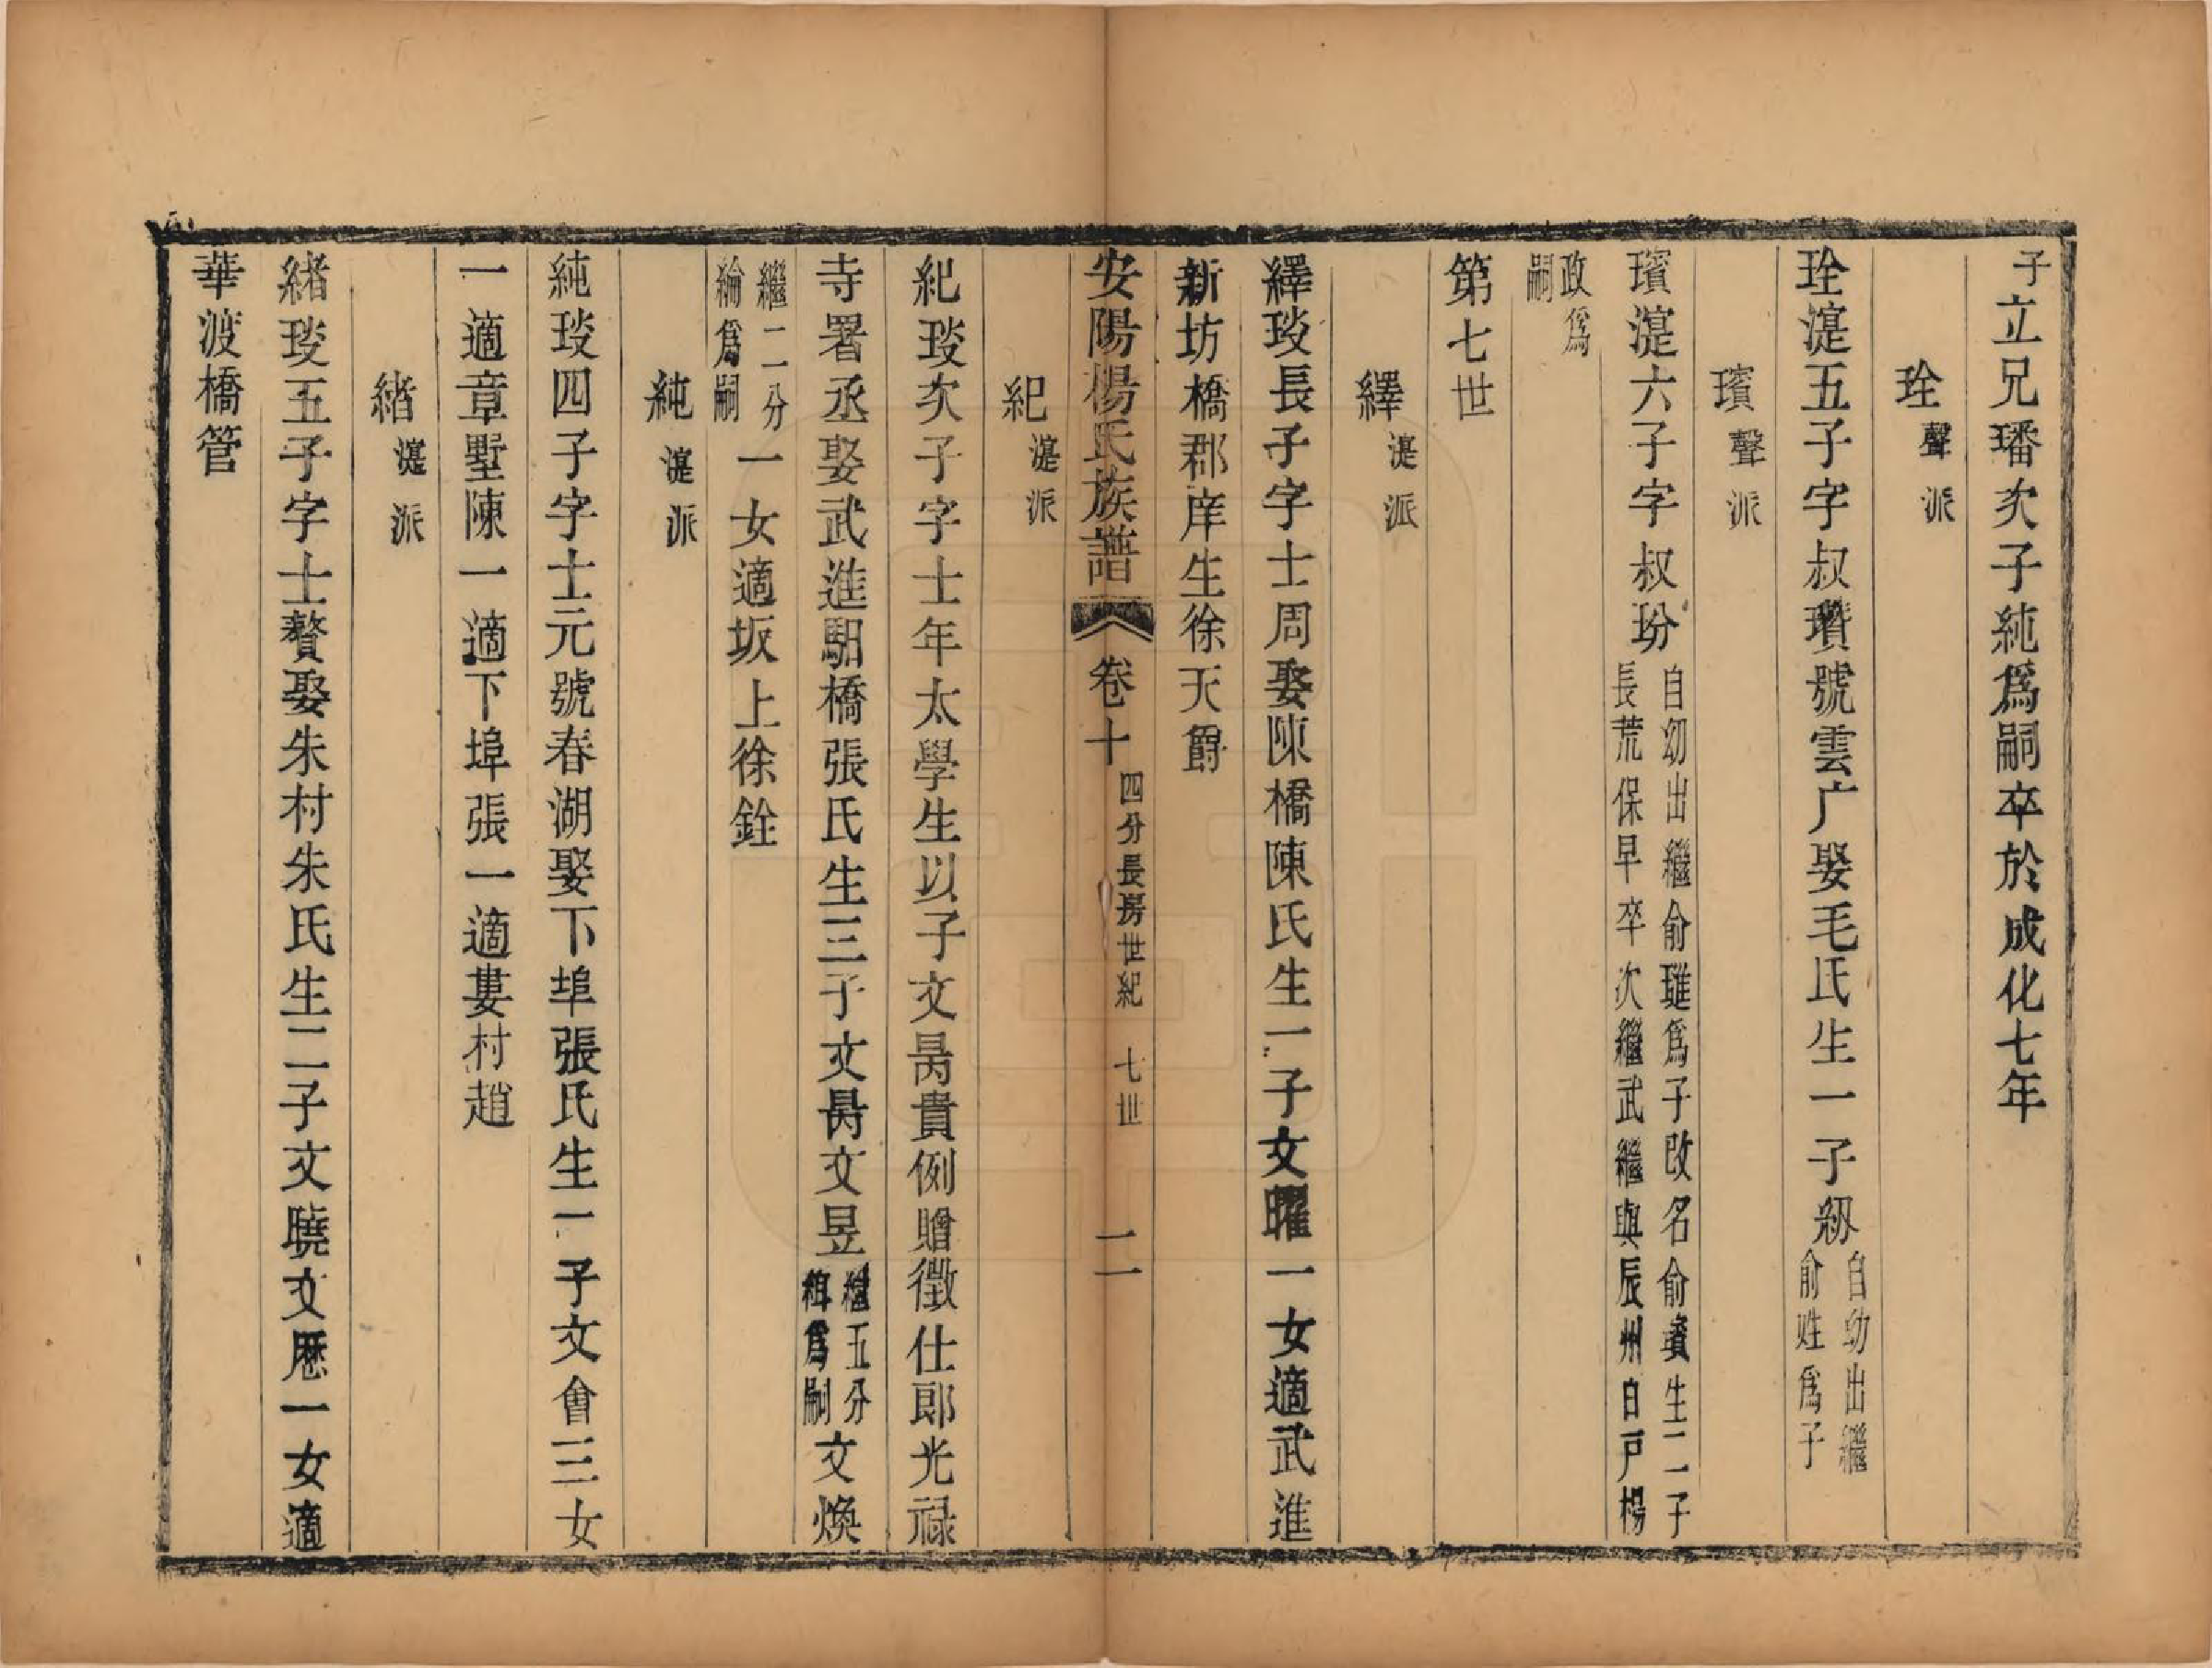 子立兄璠次子純爲嗣卒於成化七年
珍聲派
珍湜五子字叔瓚號雲广娶毛氏生一子級自幼出繼俞姓爲子
璸聲派
璸湜六子字叔玢自幼出繼俞璡爲子改名俞賓生二子長荒保早卒次繼武繼與辰州白戸楊
政爲嗣
第七世
繹湜派
繹琰長子字士周娶陳橋陳氏生一子文曜一女適武進
新坊橋郡庠生徐天爵
安陽楊氏族譜 卷十 四分長房世紀 七世 二一
紀湜派
紀琰次子字士年太學生以子文昺貴例贈徵仕郎光祿
寺署丞娶武進馹橋張氏生三子文昺文昱繼五分組爲嗣文煥
繼二分綸爲嗣一女適坂上徐銓
純湜派
純琰四子字士元號春湖娶下埠張氏生一子文會三女
一適章墅陳一適下埠張一適婁村趙
緒湜派
緒琰五子字士贊娶朱村朱氏生二子文曉文歷一女適
華渡橋管